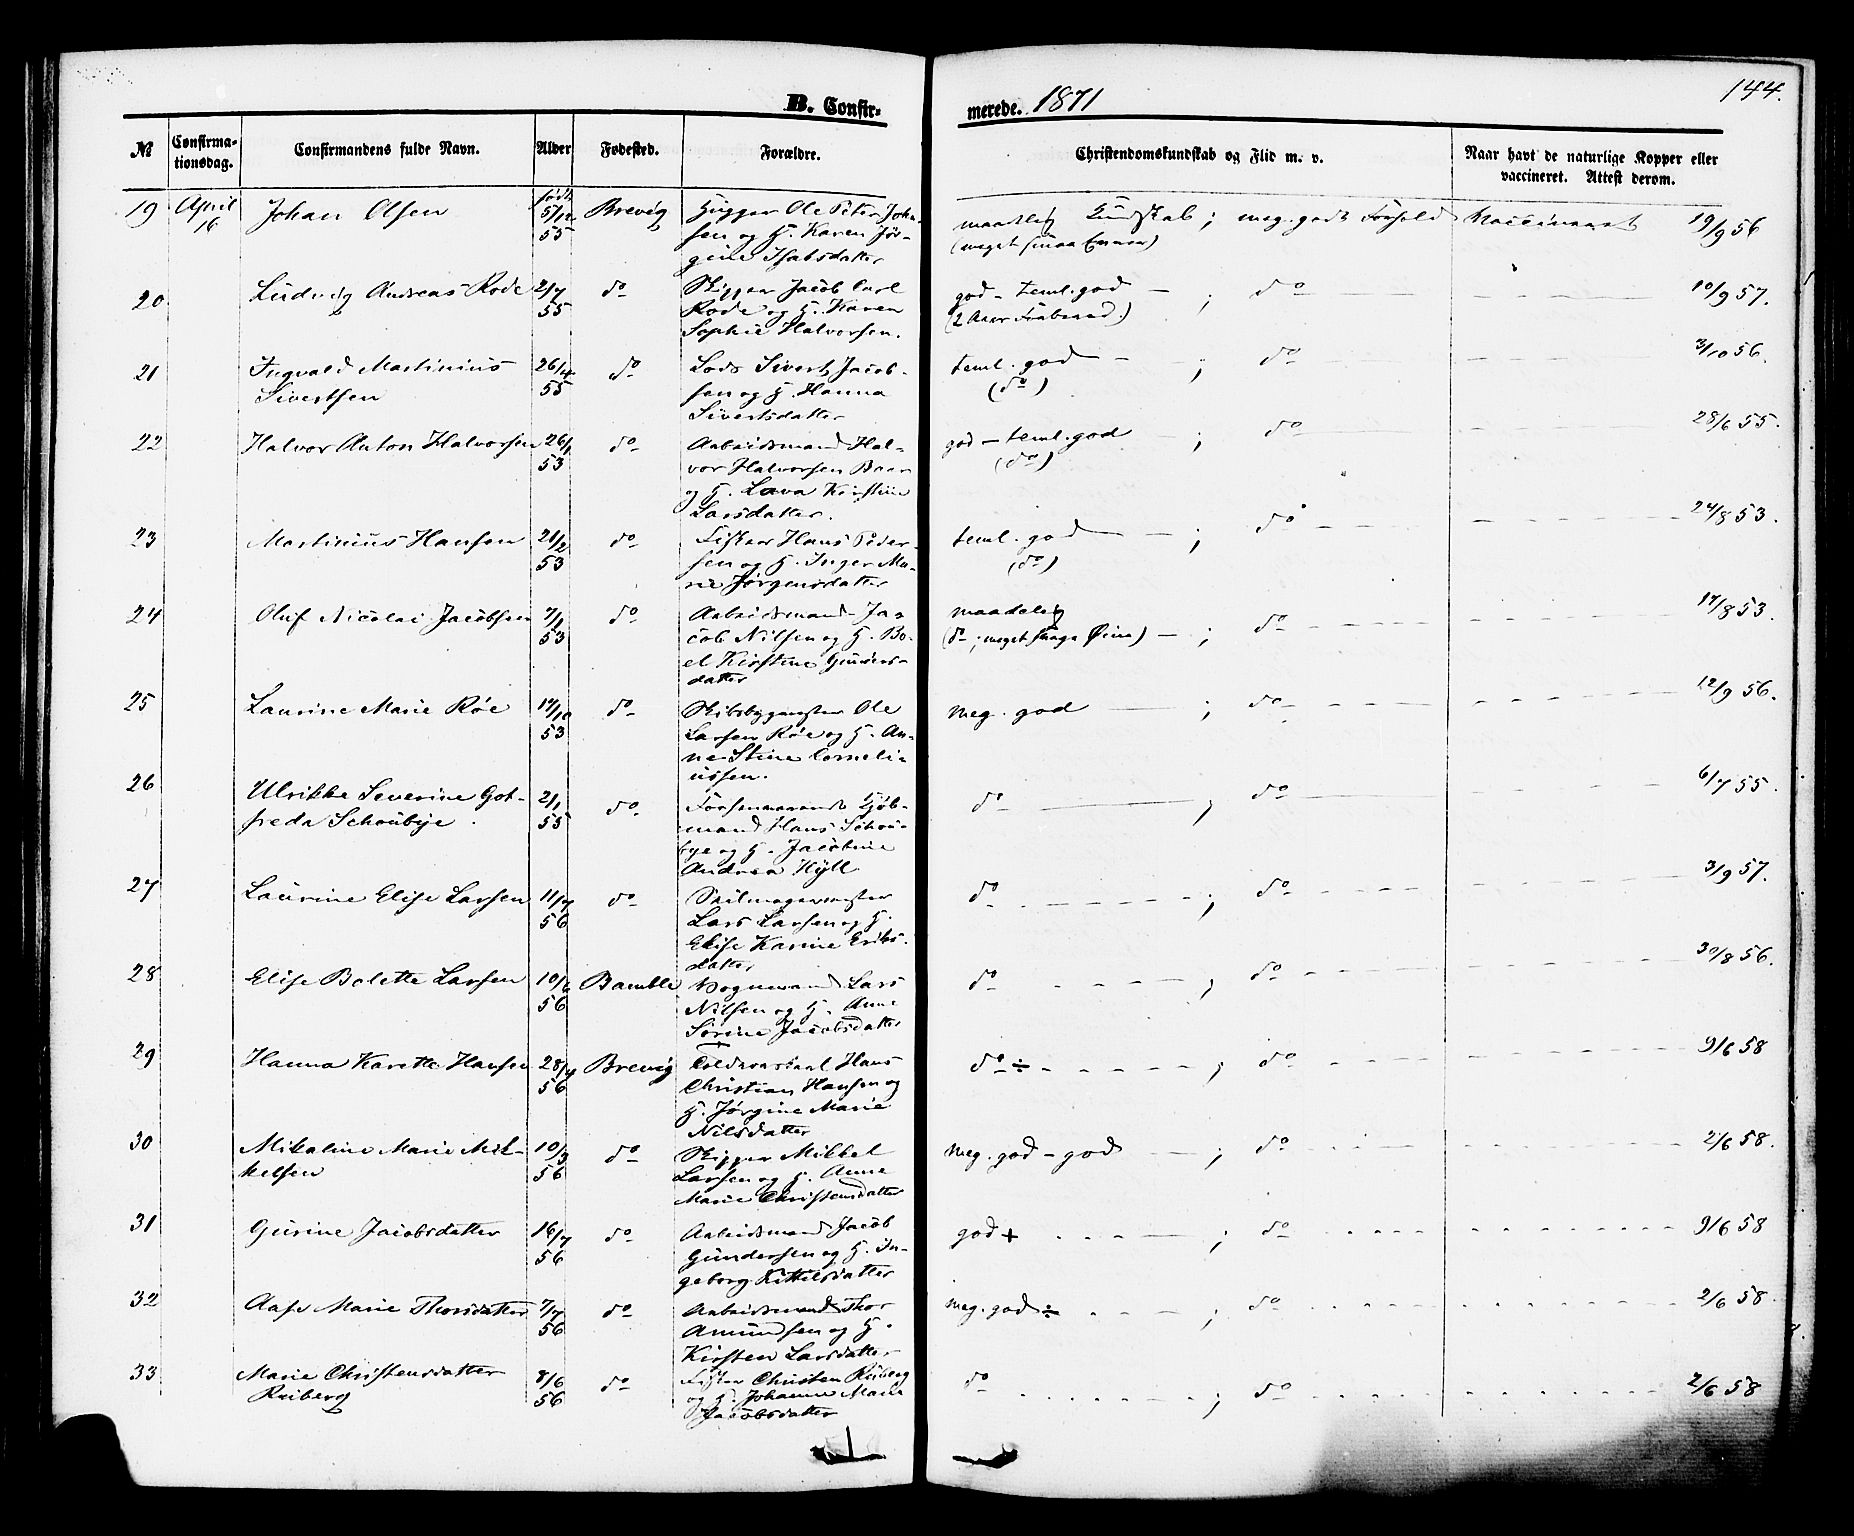 144.
B. Confir-
merede. 1871
№
Confirma-
tionsdag.
Confirmandens fulde Navn.
Alder
Fødested.
Forældre.
Christendomskundskab og Flid m. v.
Naar havt de naturlige Kopper eller
vaccineret. Attest derom.
19 April Johan Olsen født 5/12 Brevig Ole Peter John-
16 55 sen og H. Karen Jør-
gine Isaksdatter
Kundskab ; meg. godt Forhold Vaccineret 19/9 56
(meget
20 Ludvig Andreas Rode 2/7 do Skipper Jacob Carl god - teml. god - ; do 10/9 57.
55 Rode og H. Karen
Sophie Halvorsen.
21 Ingvald Martinius 26/4 do Lods Sivert Jacob- teml. god - ; do 3/10 56.
Sivertsen 55 sen og H. Hanna (do)
Sivertsdatter
22 Halvor Anton Halvorsen 26/1 do Arbeidsmand Hal- god - teml. god - ; do 28/6 55.
53 vor Halvorsen (do)
og H. Kirstine
Larsdatter.
23 Martinius Hansen 21/2 do Fisker Hans Peder- teml. god - ; do 24/8 53.
53 sen og H. Inger Ma- (do)
rie Jørgensdatter
24 Oluf Nicolai Jacobsen do Arbeidsmand Ja- maadelig 17/8 53.
53 cob Nilsen og H. Bo- (do ; meget svage Øine) - ; do
el Kirstine Gunders-
datter
25 Laurine Marie Røe 17/10 do Skibsbygmester Ole meg. god ; do 12/9 56.
53 Larsen Røe og H. An-
ne Stine Corneli-
ussen.
26 Ulrikke Severine Got- 2/1 do Kjøb- do ; do 6/7 55.
freda Schoubye 55 mand Hans Schou-
bye og H. Jacobine
Andrea Hÿll
27 Laurine Elise Larsen 11/7 do Seilmagermester do ; do 3/9 57.
56 Lars Larsen og H.
Elise Karine Eriks-
datter
28 Elise Bolette Larsen 10/6 Bamble Vognmand Lars do ; do 30/8 56.
56 Nilsen og H. Anne
Sørine Jacobsdatter
29 Hanna Karette Hansen 28/7 Brevig Hans do ÷ ; do 9/6 58
56 Christian Hansen og
H. Jørgine Marie
Nilsdatter
30 Mikaline Marie Mik- 10/3 do Skipper Mikkel meg. god - god ; do 2/6 58.
kelsen 56 Larsen og H. Anne
Marie Christensdatter
31 Gurine Jacobsdatter 16/7 do Arbeidsmand Jacob god + ; do 9/6 58
56 Gundersen og H. In-
geborg Kittilsdatter
32 Aase Marie Thorsdatter 7/7 do Arbeidsmand Thor meg. god ÷ ; do 2/6 58.
56 Amundsen og H.
Kirsten Larsdatter
33 Marie Christensdatter 8/6 do Fisker Christen Riiberg do ; do 2/6 58
Riiberg 56 og H. Johanne Marie
Jacobsdatter